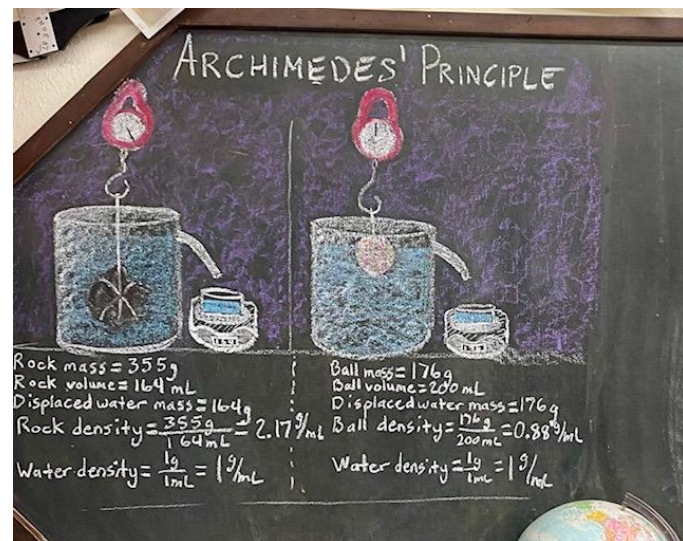 ARCHIMEDES' PRINCIPLE
Rock mass = 355g
Rock volume = 164 mL
Displaced water mass = 164g
Rock density = 355g/164mL = 2.17 g/mL
Water density = 1g/1mL = 1 g/mL
Ball mass = 176g
Ball volume = 200 mL
Displaced water mass = 176g
Ball density = 176g/200mL = 0.88 g/mL
Water density = 1g/1mL = 1 g/mL